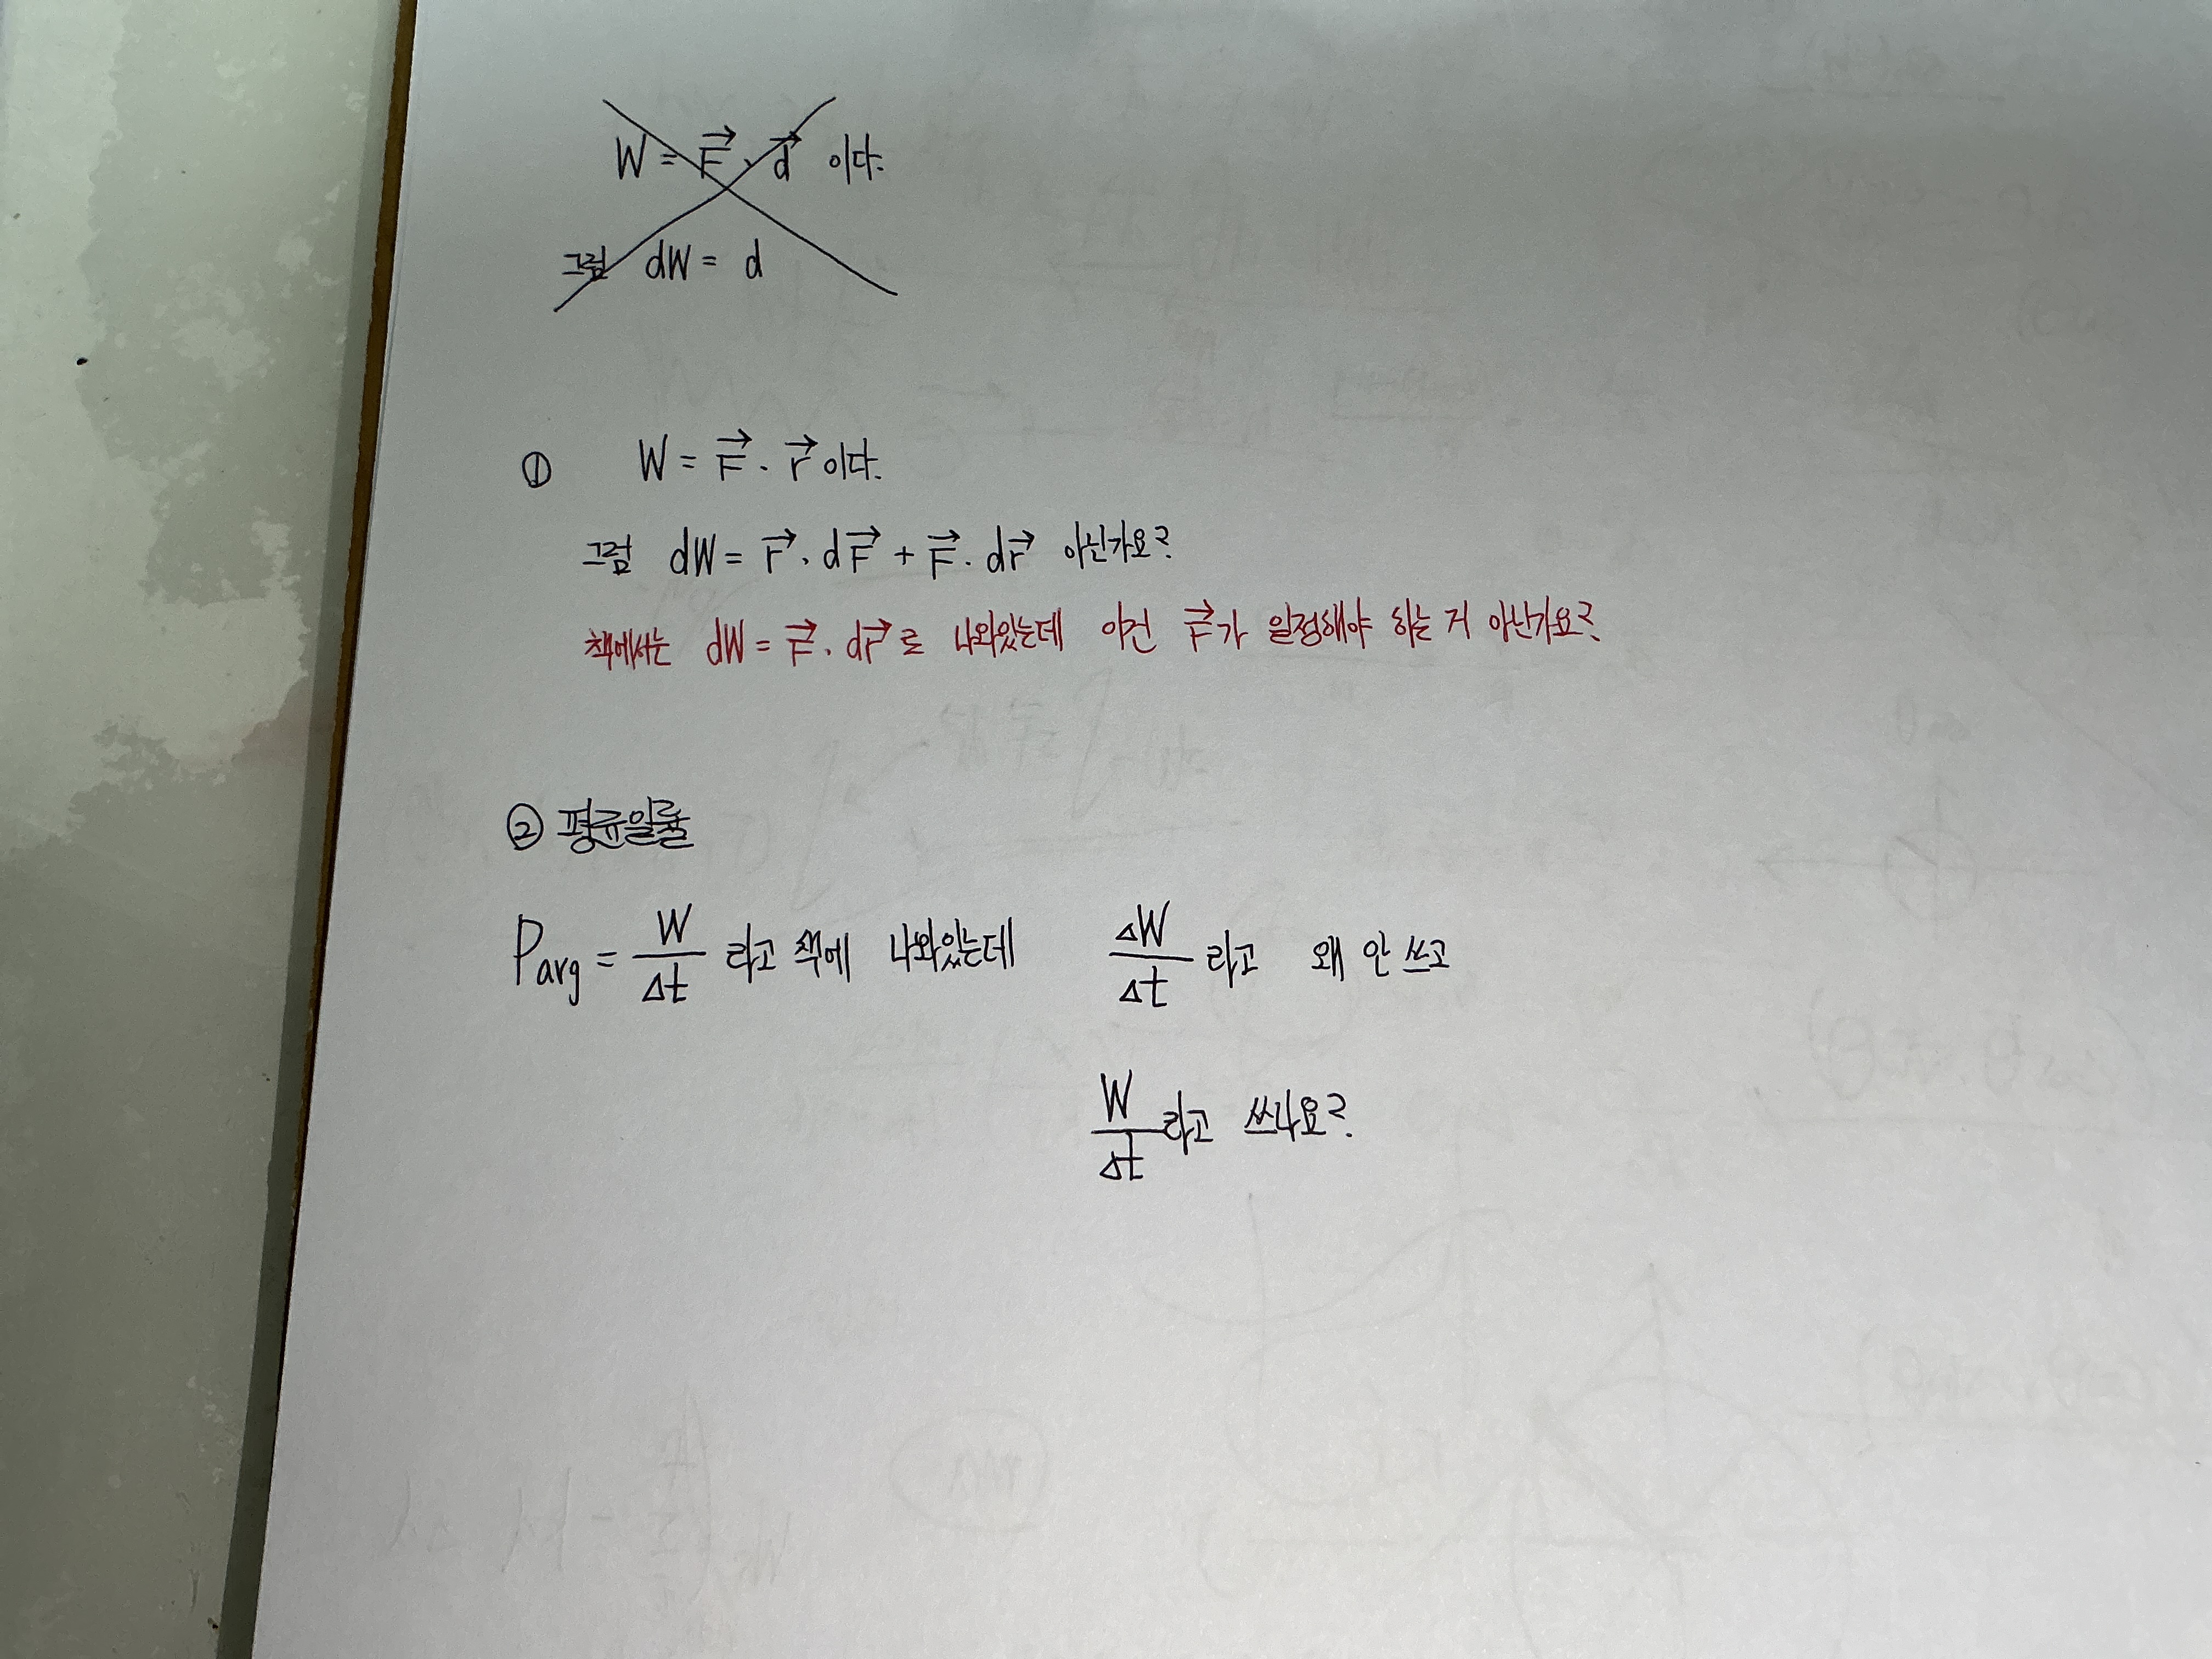 W = F⃗ · d⃗ 이다.
그럼 dW = d
① W = F⃗ · r⃗ 이다.
그럼 dW = r⃗ · dF⃗ + F⃗ · dr⃗ 아닌가요?
책에서는 dW = F⃗ · dr⃗ 로 나와있는데 이건 F⃗가 일정해야 하는 거 아닌가요?
② 평균일률
Parg = W/Δt 라고 책에 나와있는데 ΔW/Δt 라고 왜 안 쓰고
W/Δt 라고 쓰나요?